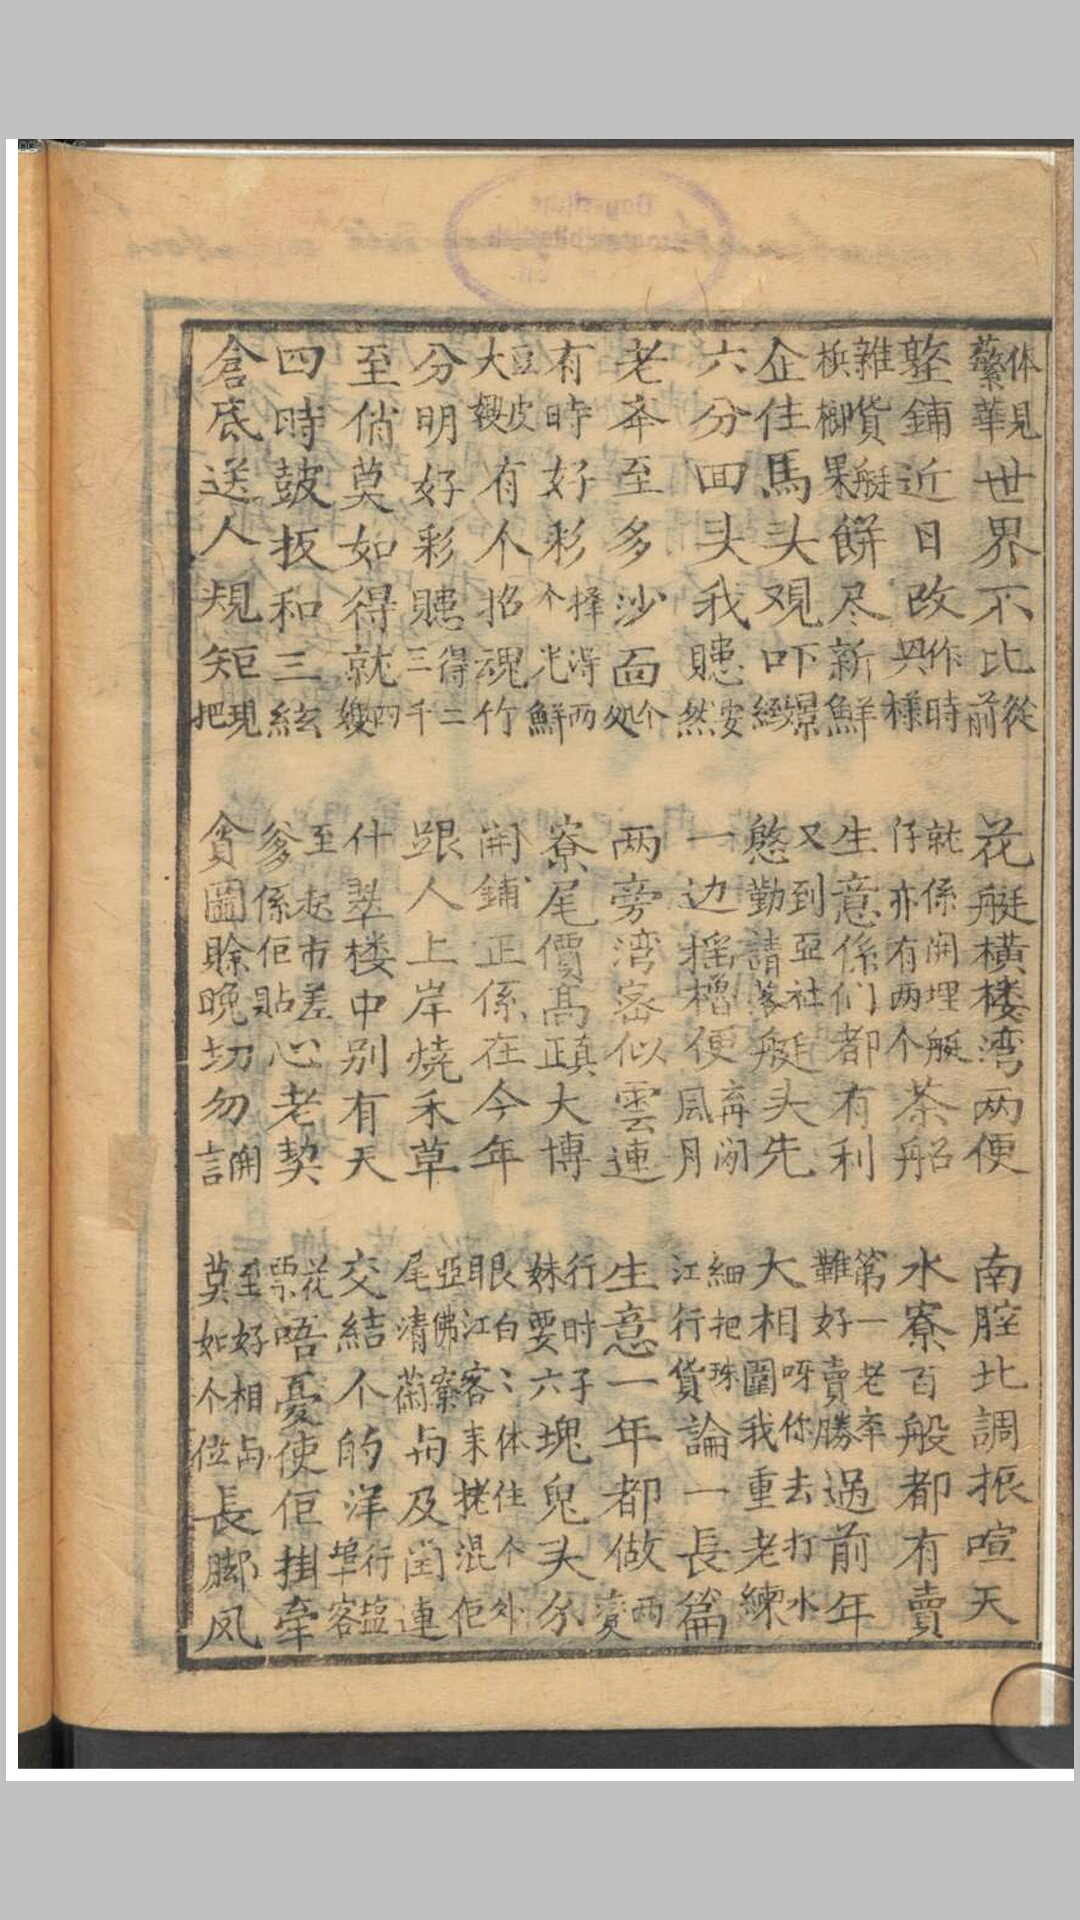 体見蘩華世界不比從前
花艇橫楼湾两便
南腔北調振喧天
整鋪近日改作時異樣
就係開埋艇仔亦有两个茶船
水寮百般都有賣
雜貨艇梹榔果餅尽新鮮
生意係们都有利
第一老牵難好賣勝過前年
企住馬头观吓景緻
又到亞社慇勤請落艇头先
大相呀你去打水圍我重老練
六分回头我賍安然
一边摇櫓便斉闲風月
細把珠江行貨論一長篇
老举至多沙面个処
两旁湾密似雲連
生意一年都做两变
有時好彩擇得两个光鮮
寮尾價高真大博
行时子妹要六塊鬼头分
豆皮大嫂有个招魂竹
開鋪正係在今年
眼白〻体住个外江客来混佢
分明好彩賍得二三千
跟人上岸燒禾草
亞佛寮尾清与及闰連
至俏莫如得就四嫂
什翠楼中别有天
交結个的洋行塩埠客
四時鼓板和三絃
至起市差爹係佢貼心老契
花票唔憂使佢掛牽
倉底送人規矩現把
貪圖賒晚切勿開言
至好相与莫如个位長脚凤